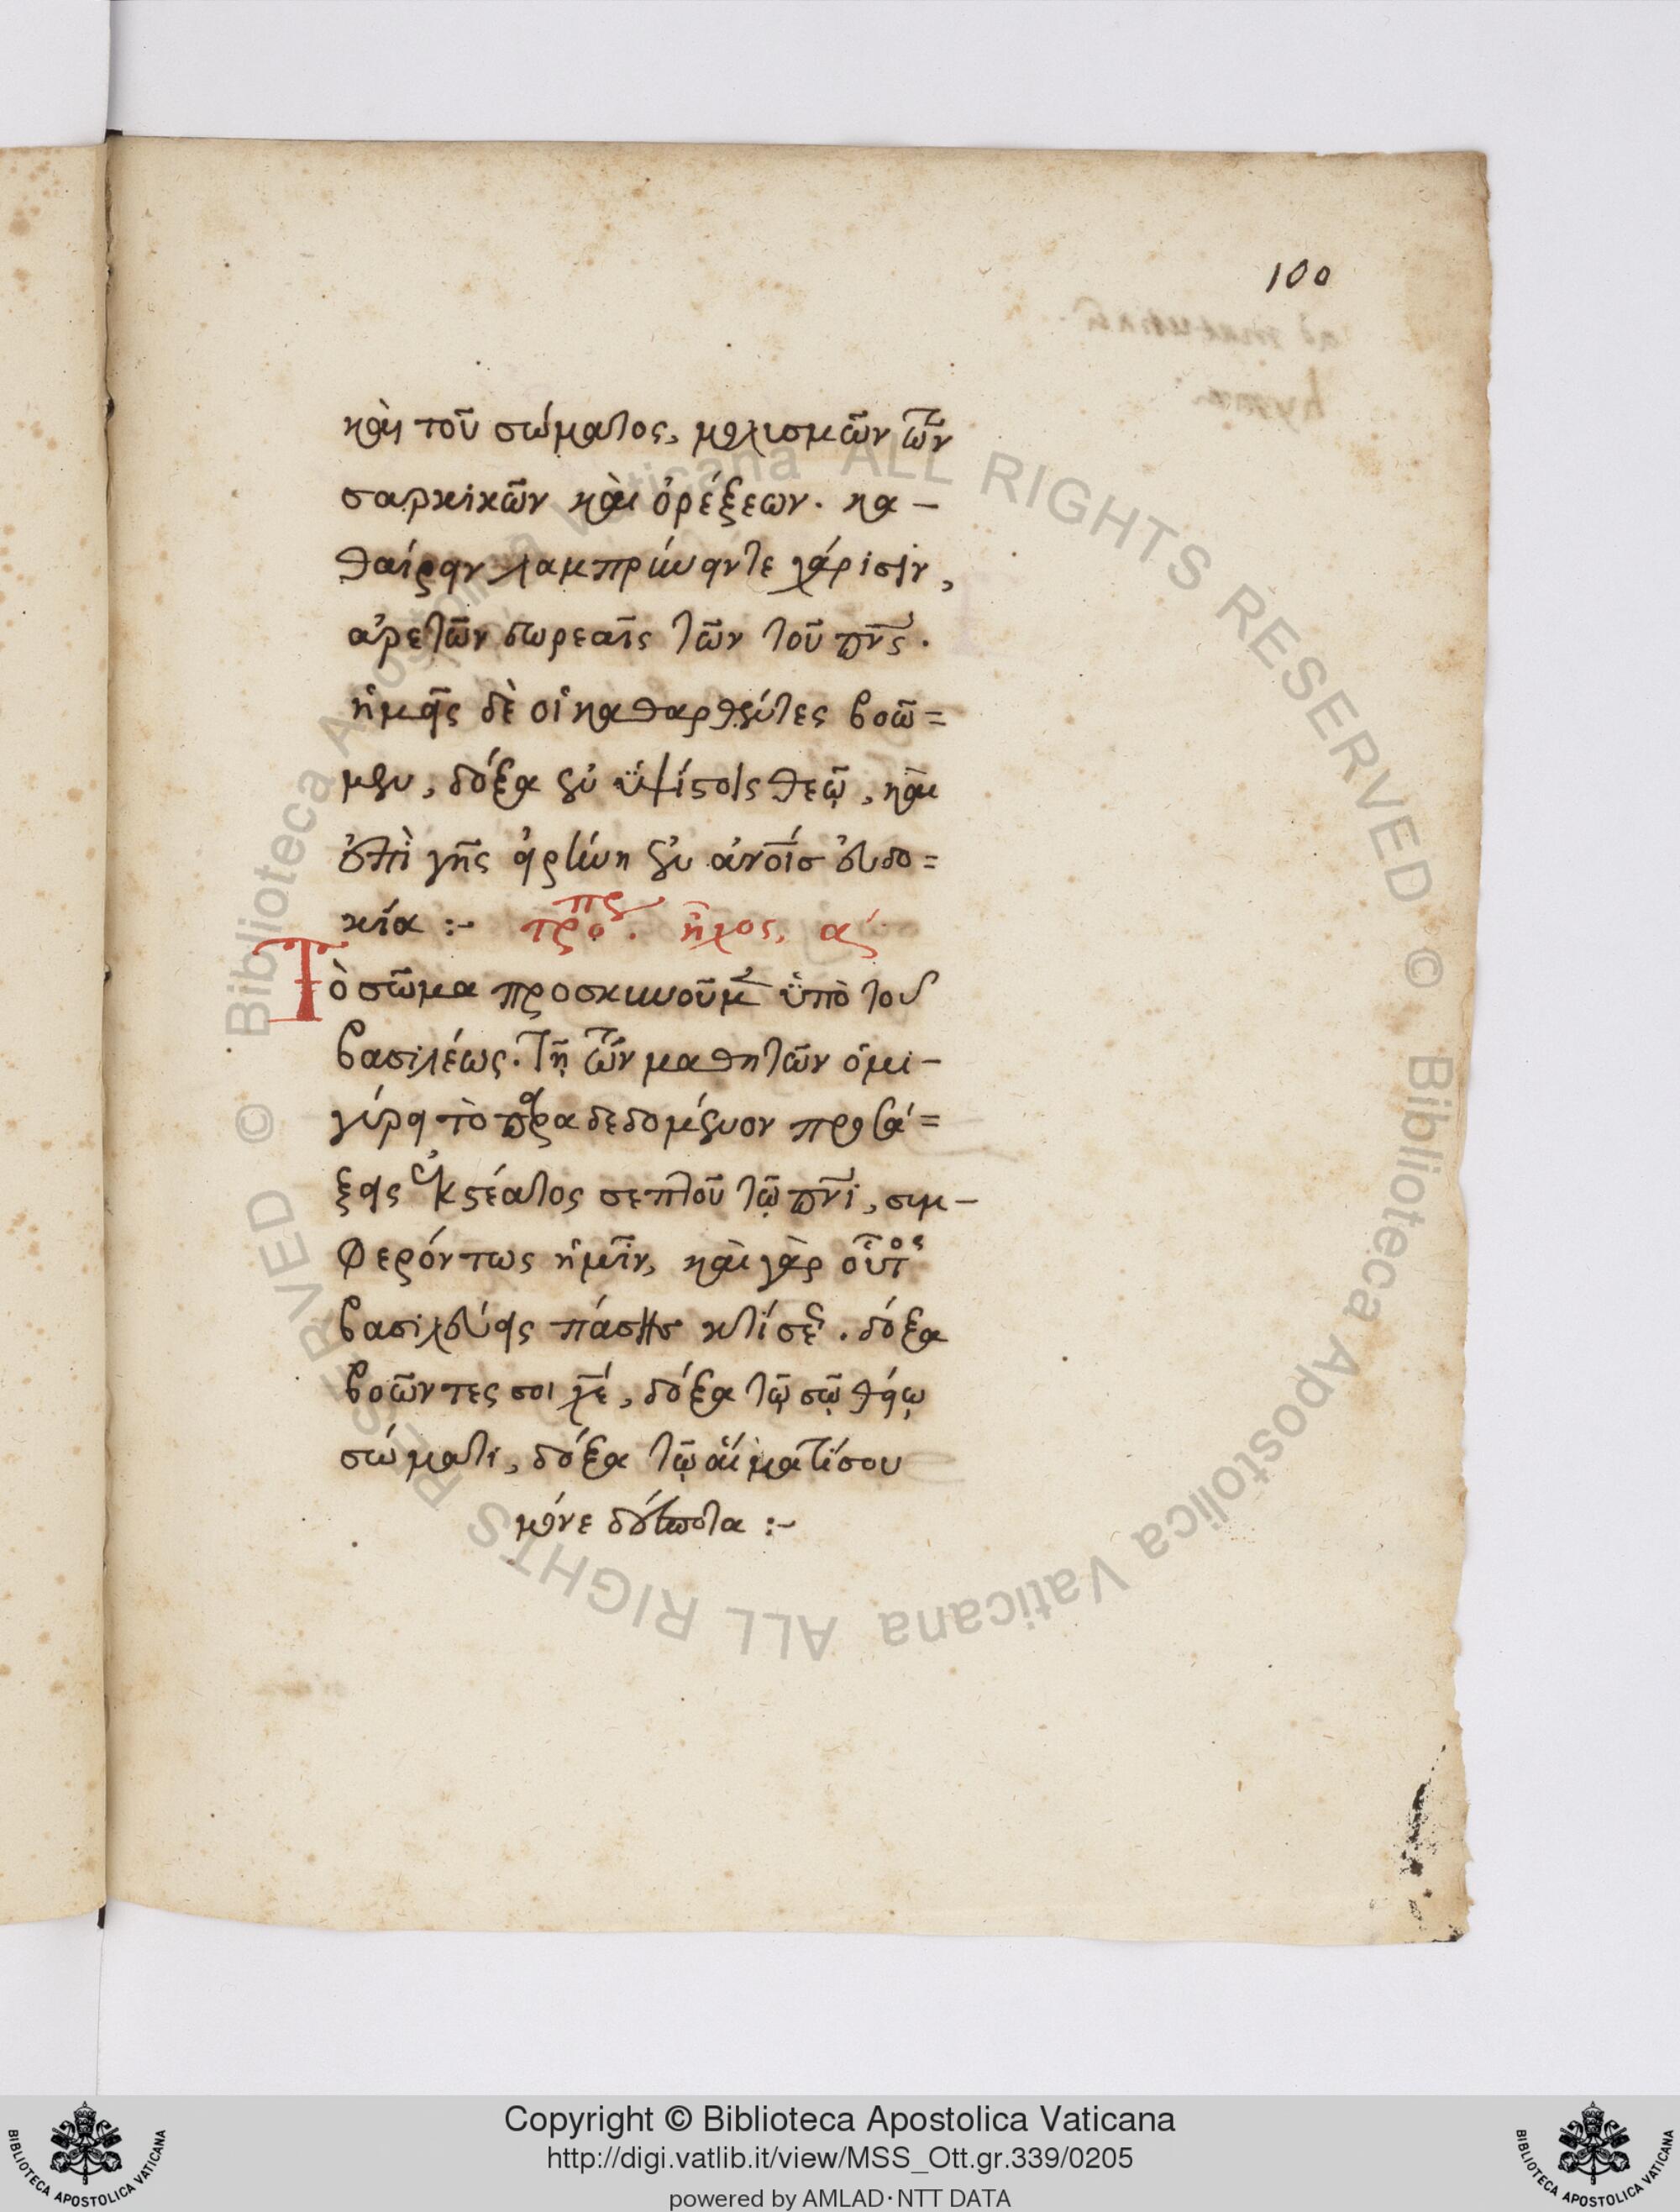 100
καὶ τοῦ σώματος, μολυσμῶν τῶν
σαρκικῶν καὶ ὀρέξεων. κα-
θαίρειν λαμπρύνειν τε χάρισιν,
ἀρετῶν δωρεαῖς τῶν τοῦ πν̅ς.
ἡμεῖς δὲ οἱ καθαρθέντες βοῶ=
μεν, δόξα ἐν ὑψίστοις θεῷ, καὶ
ἐπὶ γῆς εἰρήνη ἐν ἀνοις εὐδο=
κία :-
ἦχος, α
Τὸ σῶμα προσκυνοῦμ ὑπὸ τοῦ
βασιλέως. τῇ τῶν μαθητῶν ὁμη-
γύρει τὸ παραδεδομένον
στέατος σεπτοῦ τῷ πν̅ι, συμ-
φερόντως ἡμῖν, καὶ γὰρ οὗτος
βασιλεύεις πάσης κτίσε. δόξα
βοῶντές σοι χε, δόξα τῷ σῷ θείῳ
σώματι, δόξα τῷ αἵματί σου
μόνε
Copyright © Biblioteca Apostolica Vaticana
http://digi.vatlib.it/view/MSS_Ott.gr.339/0205
powered by AMLAD·NTT DATA
BIBLIOTECA APOSTOLICA VATICANA
BIBLIOTECA APOSTOLICA VATICANA
© Biblioteca Apostolica Vaticana ALL RIGHTS RESERVED
© Biblioteca Apostolica Vaticana ALL RIGHTS RESERVED